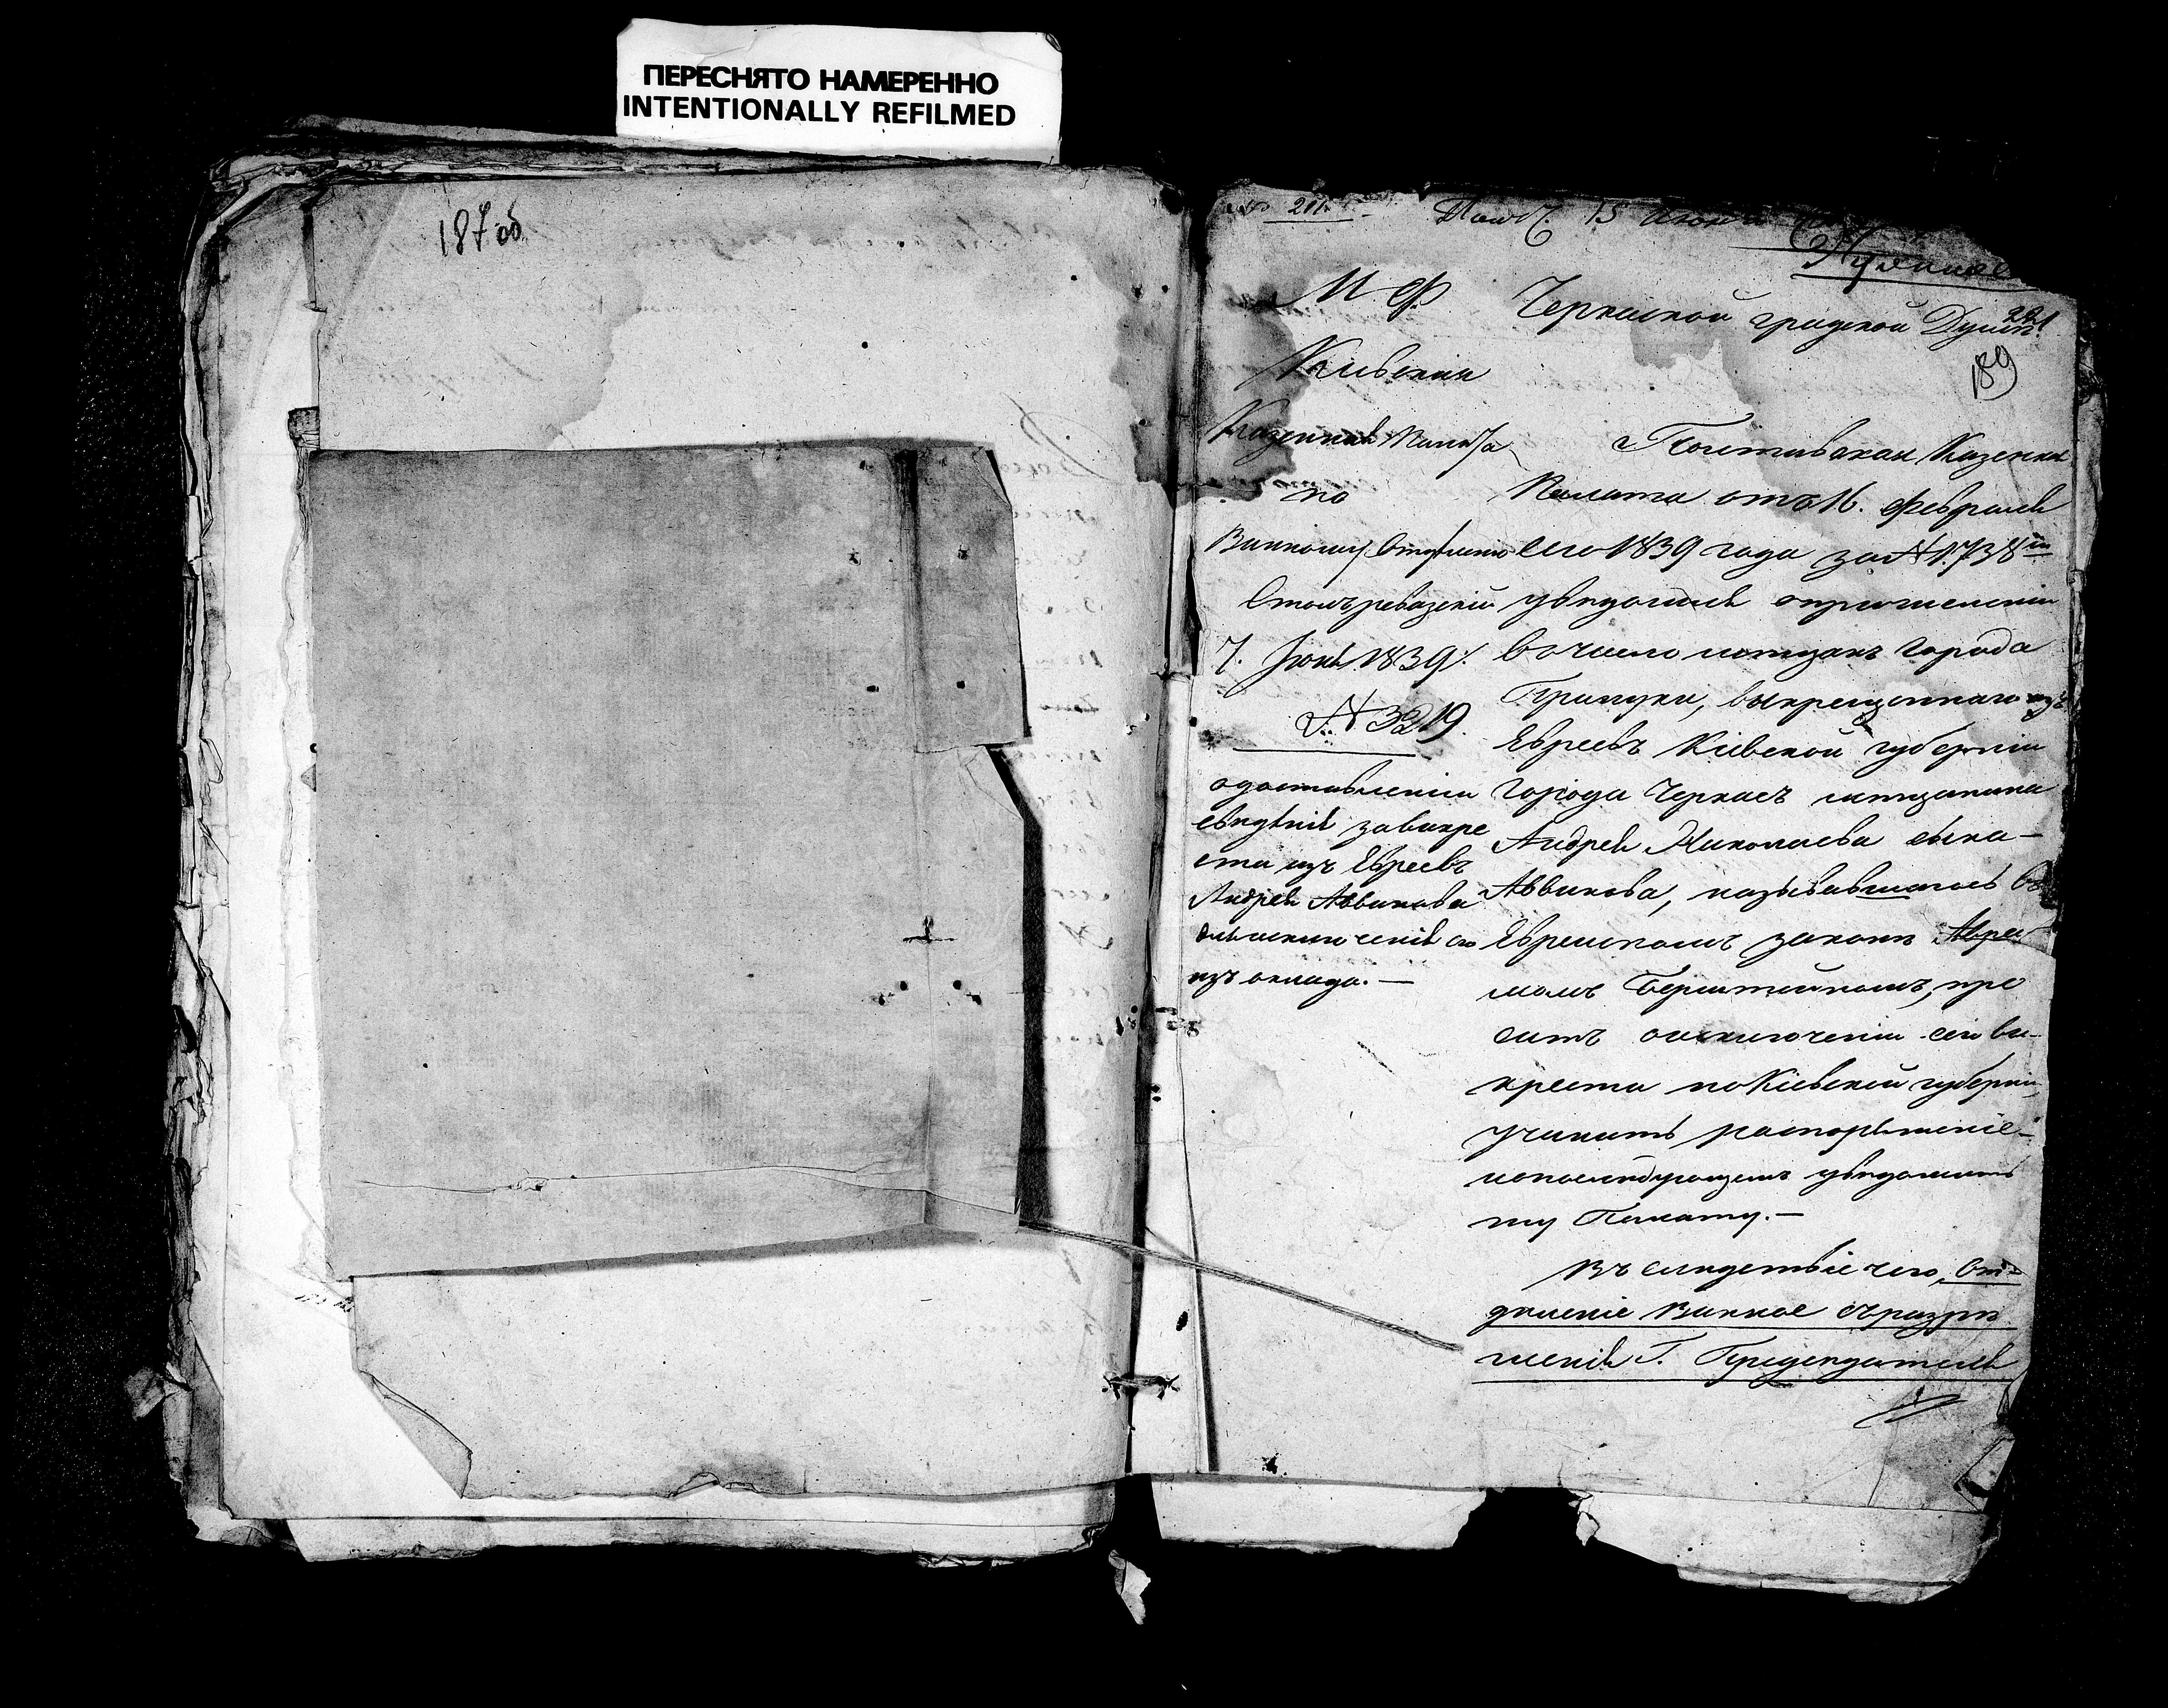 ПЕРЕСНЯТО НАМЕРЕННО
INTENTIONALLY REFILMED
187 об
201
Получ. 15 Июня
М. Ф.
Кіевская
Казенная Палата
по
Винному Отделенію
Столъ ревизскій
7. Іюня 1839 г.
№ 3219.
о доставленіи
сведенія за выкре
ста изъ Евреевъ
Андрея
изъ оклада. —
Черкаской градской Думе.
221
189
Полтавская Казенная
Палата отъ 16. Февраля
сего 1839 года за № 1738м
уведомляя о причисленіи
в число мещанъ города
Прилуки, выкрещеннаго изъ
Евреевъ Кіевской губерніи
города Черкасъ мещанина
Андрея Николаева сына —
называвшагось въ
Еврейскомъ законе Авра
момъ Берштейномъ, про
ситъ о исключеніи сего вы-
креста по Кіевской губерніи,
учинить распоряженіе
и о последующемъ уведомить
ту Палату. —
Въ следствіе чего, От-
деленіе Винное съ разре
шенія Г. Председателя